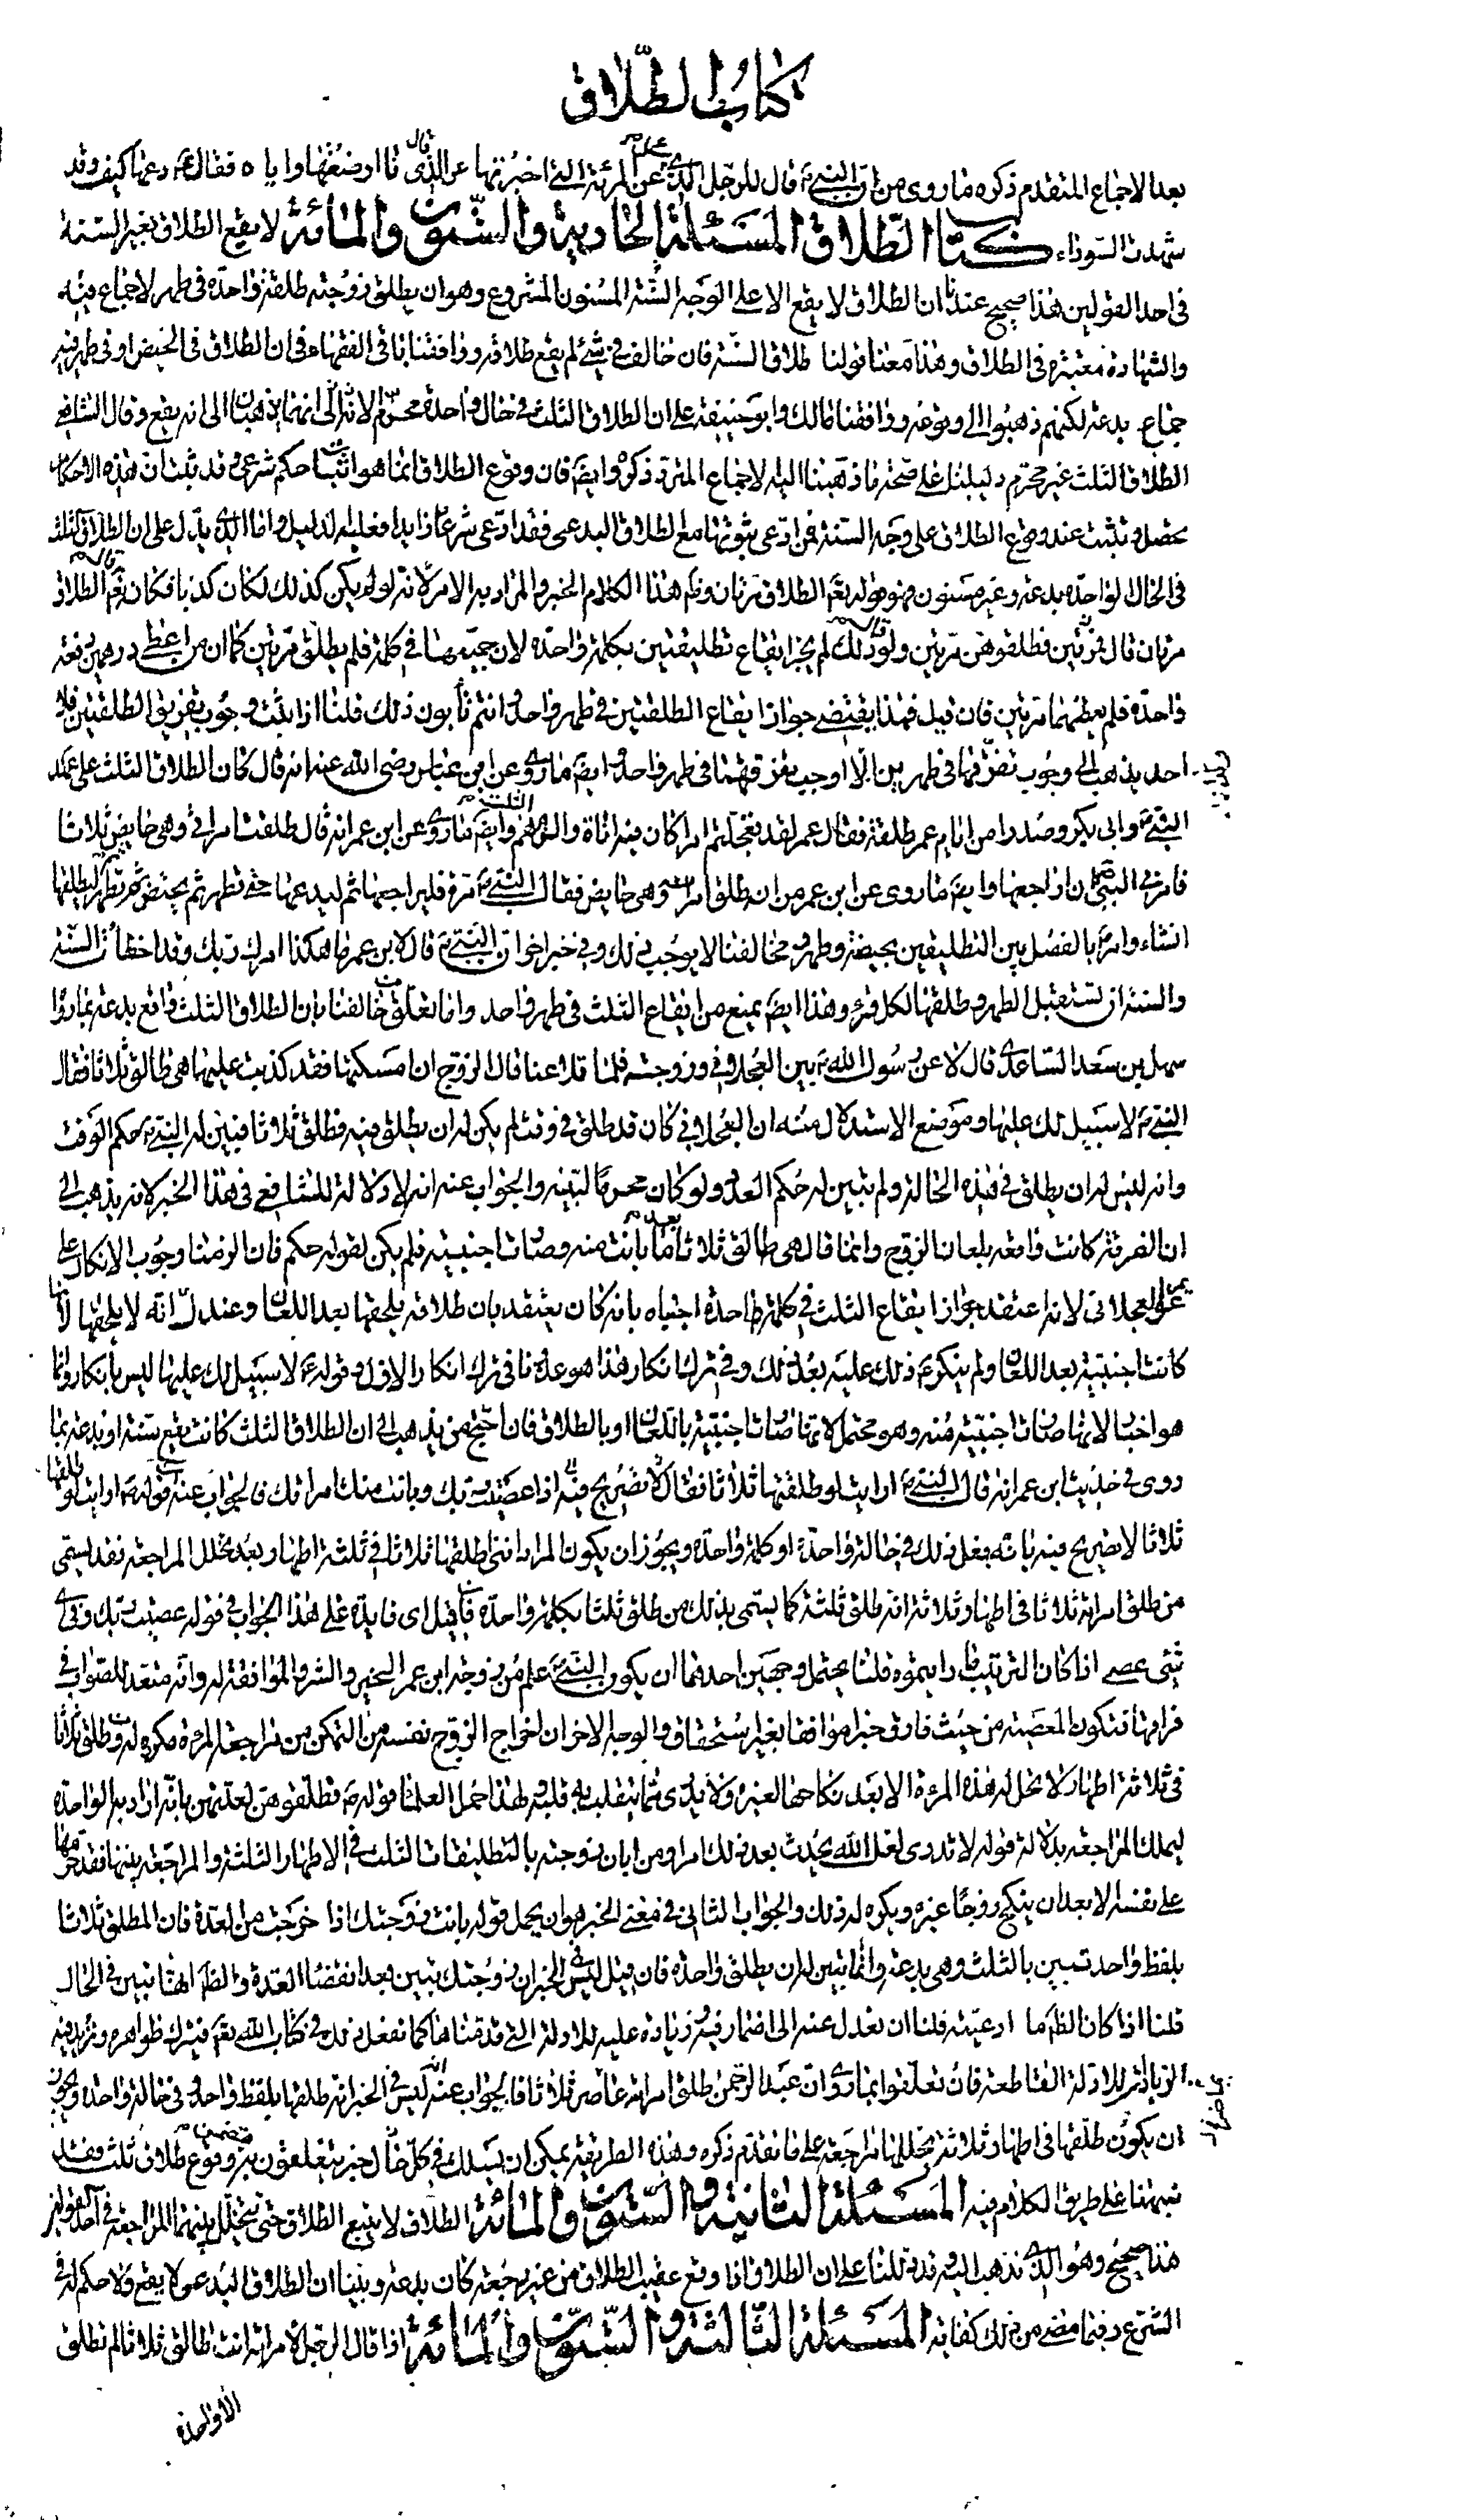 كتاب الطلاق
بعد الاجماع المتقدم ذكره ما روى من ان النبي ص قال للرجل الذى سأله عن المرئة التى اخبرتها عن الذى قال انا ارضعتهما وايا ه فقال ع دعها كيف وقد
شهدت السوداء كتاب الطلاق المسئلة الحادية والستون والمائة لا يقع الطلاق بغير السنة
فى احد القولين هذا صحيح عندنا ان الطلاق لا يقع الا على الوجه السنة المسنون المشروع وهو ان يطلق زوجته طلقة واحدة فى طهر لا جماع فيه
والشهادة معتبرة فى الطلاق وهذا معنا قولنا طلاق السنة فان خالف فى شئ لم يقع طلاقه ووافقنا باقى الفقهاء فى ان الطلاق فى الحيض او فى طهر فيه
جماع بدعة لكنهم ذهبوا الى وقوعه ووافقنا مالك وابو حنيفة على ان الطلاق الثلث فى حال واحدة محرم الا انهما يذهبان الى انه يقع وقال الشافعى
الطلاق الثلث غير محرم دليلنا على صحة ما ذهبنا اليه الاجماع المتردد ذكره وايضا فان وقوع الطلاق انما هو اثبات حكم شرعى وقد ثبت ان هذه الاحكام
تحصل وتثبت عند وقوع الطلاق على وجه السنة فمن ادعى ثبوتها مع الطلاق البدعى فقد ادعى شرعا زايدا فعليه الدليل واما الذى يدل على ان الطلاق الثلث
فى الحال الواحدة بدعة وغير مسنون فهو قوله تعالى الطلاق مرتان وظم هذا الكلام الخبر والمراد به الامر لانه لو لم يكن كذلك لكان كذبا فكانه تعالى قال الطلاق
مرتان قال مرتين فطلقوهن مرتين ولو قال ذلك لم يجز ايقاع تطليقتين بكلمة واحدة لان جمعهما فى كلمة فلم يطلق مرتين كما ان من اعطى درهمين دفعة
واحدة فلم يعطهما مرتين فان قيل فهذا يقتضى جواز ايقاع الطلقتين فى طهر واحد وانتم تأبون ذلك قلنا اذا ثبت وجوب تفريق الطلقتين فلا
احد يذهب الى وجوب تفرقهما فى طهرين الا اوجب تفرقهما فى طهر واحد وايضا ما روى عن ابن عباس رضى الله عنه انه قال كان الطلاق الثلث على عهد
النبى ص وابى بكر وصدرا من ايام عمر طلقة فقال عمر لقد تعجلتم امرا كان فيه اناة والزمهم الثلث وايضا ما روى عن ابن عمر انه قال طلقت امراتى وهى حايض ثلاثا
فامرنى النبى ص ان اراجعها وايضا ما روى عن ابن عمر من ان طلق امراته وهى حايض فقال النبى ص مره فليراجعها ثم ليدعها حتى تطهر ثم تحيض ثم تطهر ثم ليطلقها
انشاء وامره بالفصل بين التطليقتين بحيضة وطهر ومخالفنا لا يوجب ذلك وفى خبر اخر ان النبى ص قال لابن عمر ما هكذا امرك ربك وقد اخطأت السنة
والسنة ان تستقبل الطهر وطلقها لكل قرء وهذا ايضا يمنع من ايقاع الثلث فى طهر واحد واما تعلق مخالفنا بان الطلاق الثلث واقع بدعة بما رواه
سهل بن سعد الساعدى قال لاعن رسول الله ص بين العجلانى وزوجته فلما تلاعنا قال الزوج ان امسكتها فقد كذبت عليها هى طالق ثلاثا فقال
النبى ص لا سبيل لك عليها وموضع الاستدلال منه ان العجلانى كان قد طلق فى وقت لم يكن له ان يطلق فيه فطلق ثلاثا فبين له النبى ص حكم الوقت
وانه ليس له ان يطلق فى هذه الحالة ولم يبين له حكم العدد ولو كان محرما لبينه والجواب عنه انه لا دلالة للشافعى فى هذا الخبر لانه يذهب الى
ان الفرقة كانت واقعة بلعان الزوج وانما قال هى طالق ثلاثا بعد ما بانت منه وصارت اجنبية فلم يكن لقوله حكم فان الزمنا وجوب الانكار على
العجلانى لانه اعتقد جواز ايقاع الثلث فى كلمة واحدة اجبناه بانه كان يعتقد بان طلاقه يلحقها بعد اللعان وعندك انه لا يلحقها لانها
كانت اجنبية بعد اللعان ولم ينكر ع ذلك عليه بعد ذلك وفى ترك انكار هذا هو عذرنا فى ترك انكار الاول وقوله ع لا سبيل لك عليها ليس بانكار وانما
هو اخبار لانها صارت اجنبية منه وهو محتمل لانها صارت اجنبية باللعان او بالطلاق فان احتج من يذهب الى ان الطلاق الثلث كانت يقع سنة او بدعة بما
روى فى حديث ابن عمر انه قال للنبى ص ارايت لو طلقتها ثلاثا فقال اذا عصيت ربك وبانت منك امراتك فالجواب عنه قوله ارايت لو طلقتها
ثلاثا لا تصريح فيه بانه يفعل ذلك فى حالة واحدة او كلمة واحدة ويجوز ان يكون المراد اننى اطلقها ثلاثا فى ثلثة اطهار وبعد تخلل المراجعة فقد يسمى
من طلق امراته ثلاثا فى اطهار ثلاثة انه طلق ثلثة كما يسمى بذلك من طلق ثلثا بكلمة واحدة فان قيل اى فايدة على هذا الجواب فى قوله عصيت ربك وفى اى
شئ عصى اذا كان الترتيب ما رايتموه قلنا يحتمل وجهين احدهما ان يكون النبى ص علم من زوجة ابن عمر الخير والبر والموافقة له وانه متعد للصواب فى
فراقها فتكون المعصية من حيث فارق خيرا موافقا بغير استحقاق والوجه الاخر ان اخراج الزوج نفسه من التمكن من مراجعة المرئة مكروه له ومن طلق ثلاثا
فى ثلاثة اطهار لا تحل له هذه المرئة الا بعد نكاحها لغيره ولا يدرى ما ينقلب به قلبه ولهذا حمل العلماء قوله تعالى فطلقوهن لعدتهن بانه اراد به الواحدة
ليملك المراجعة بدلالة قوله لا تدرى لعل الله يحدث بعد ذلك امرا ومن ابان زوجته بالتطليقات الثلث فى الاطهار الثلثة والمراجعة بينها فقد حرمها
على نفسه الا بعد ان ينكح زوجا غيره ويكره له ذلك والجواب الثانى فى معنى الخبر هو ان يحمل قوله بانت زوجتك اذا خرجت من العدة فان المطلق ثلاثا
بلفظ واحد تبين بالثلث وهى بدعة وانما تبين له ان يطلق واحدة فان قيل ليس فى الخبر ان زوجتك تبين بعد انقضاء العدة والظاهر انها تبين فى الحال
قلنا اذا كان الظم ما ادعيته فلنا ان نعدل عنه الى اضمار فيه وزيادة عليه للادلة التى قدمناها كما نفعل ذلك فى كتاب الله تعالى فنترك ظواهره ونزيد فيه
الزيادة للادلة القاطعة فان تعلقوا بما روى ان عبد الرحمن طلق امراته تماضر ثلاثا فالجواب عنه ليس فى الخبر انه طلقها بلفظ واحد وفى حالة واحدة ويجوز
ان يكون طلقها فى اطهار ثلاثة تخللها مراجعة على ما تقدم ذكره وهذه الطريقة يمكن ان تسلك فى كل خبر يتعلقون به يتضمن وقوع طلاق ثلث فقد
نبهنا على طريق الكلام فيه المسئلة الثانية والستون والمائة الطلاق لا يتبع الطلاق حتى تتخلل بينهما المراجعة فى احد القولين
هذا صحيح وهو الذى نذهب اليه وقد دللنا على ان الطلاق اذا وقع عقيب الطلاق من غير رجعة كان بدعة وبينا ان الطلاق البدعى لا يقع ولا حكم له فى
الشرع وفيما مضى من ذلك كفاية المسئلة الثالثة والستون والمائة اذا قال الرجل لامراته انت طالق ثلاثا لم تطلق
الا واحدة